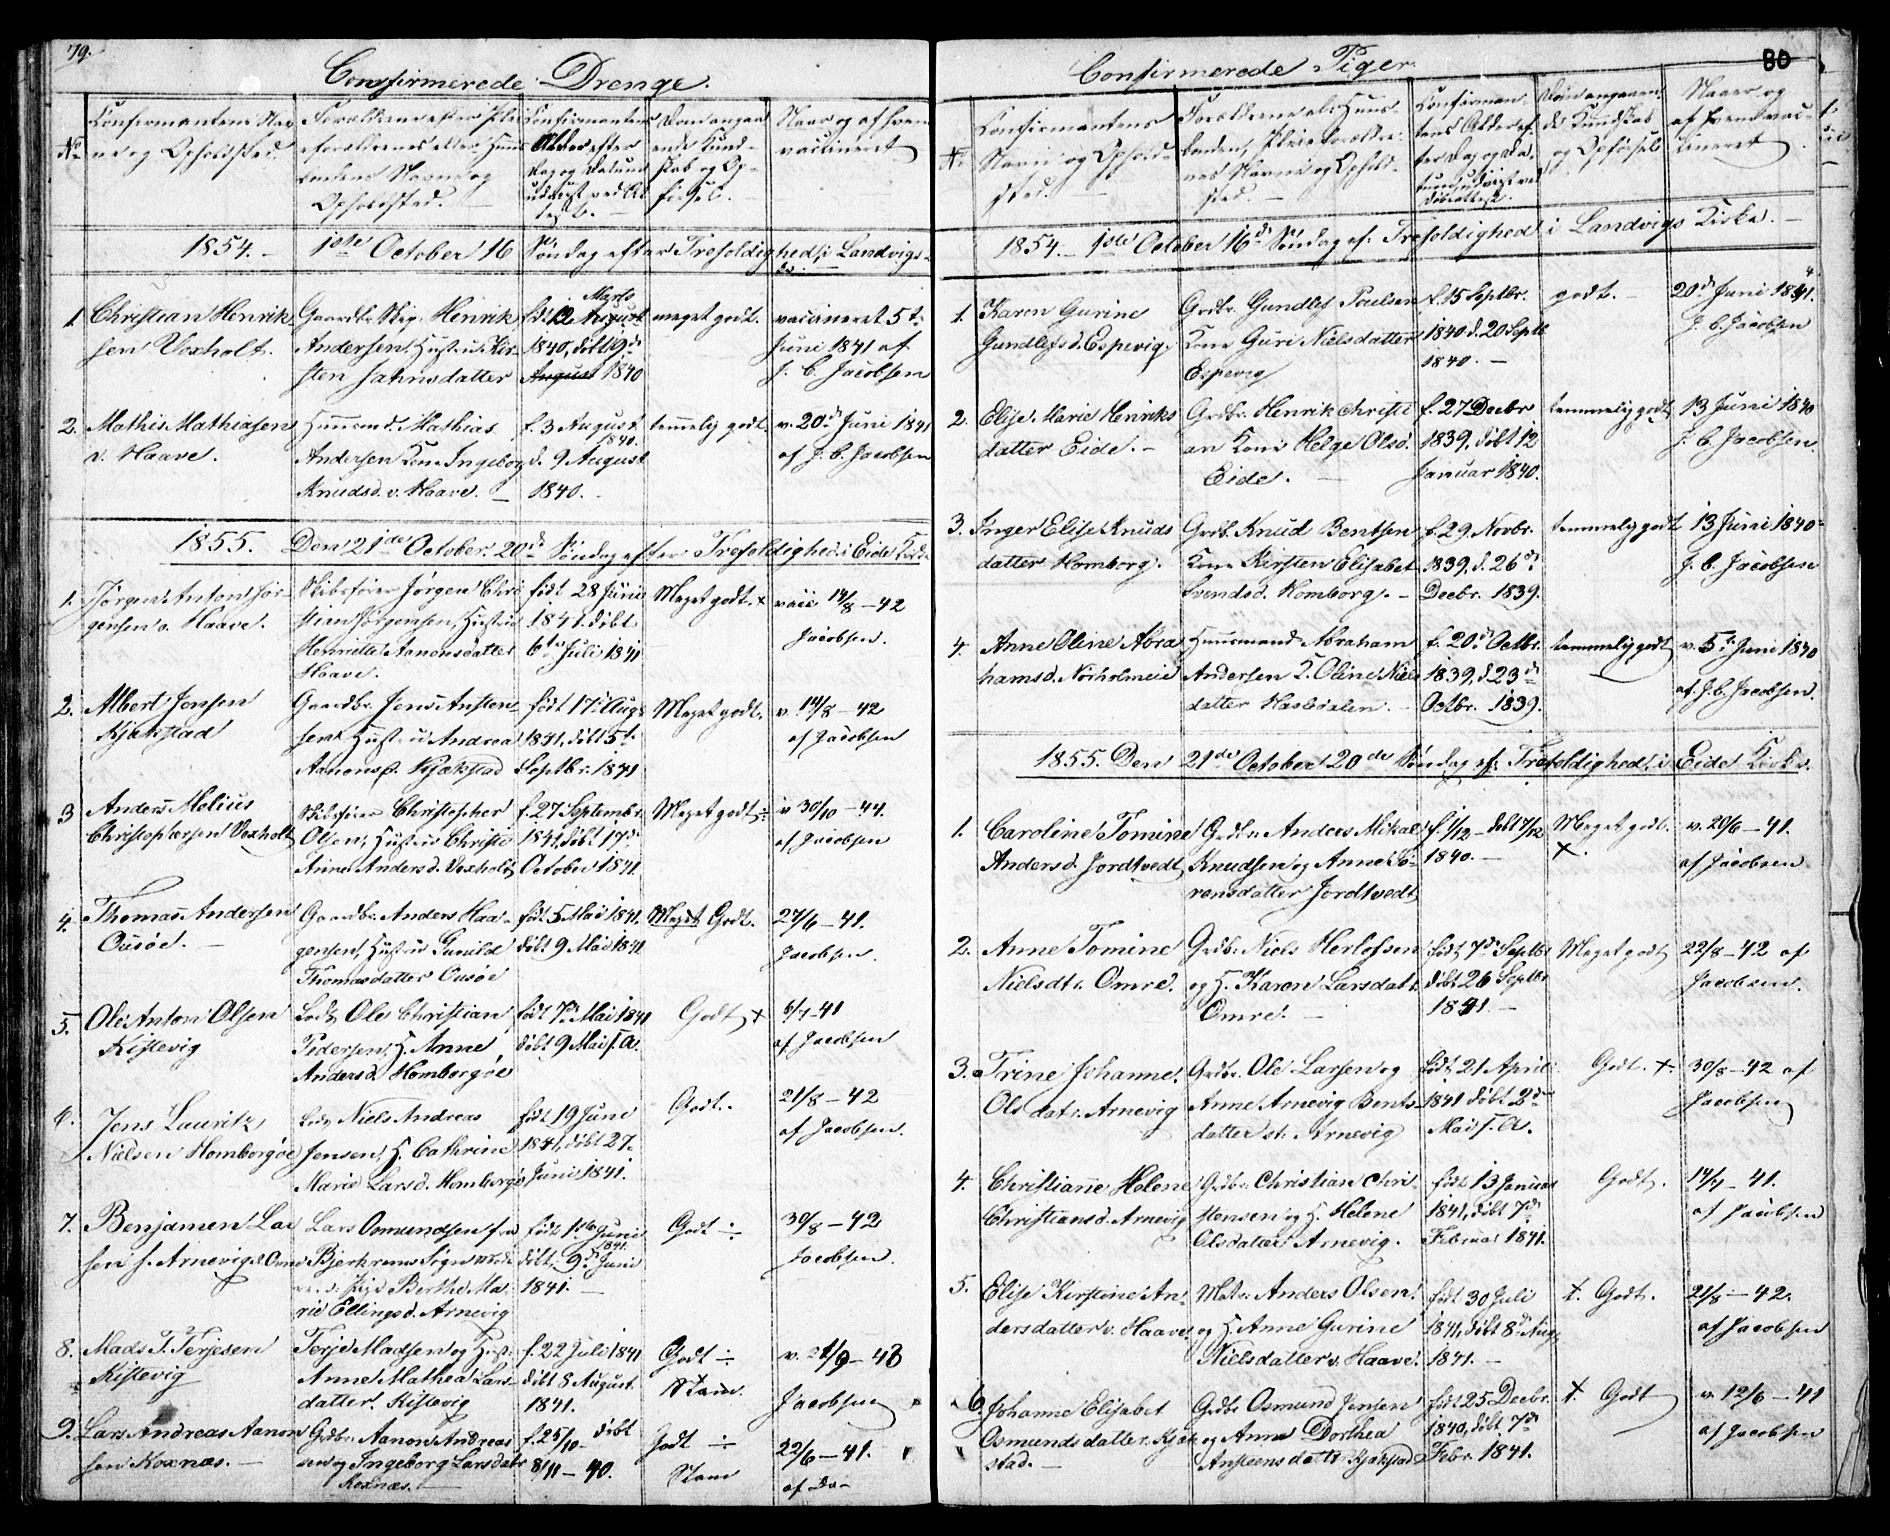 79.
Confirmerede Drenge.
No
Confirmantens Nav
ne og Opholdsted.
Forældrene efter Plei
eforældrenes eller Huus
bondens Navne og
Opholdsted.
Confirmantens
Alder efter
Dag og Datum
udviist ved At
test.
Dom angaa
ende Kund-
skab og Op-
førsel.
Naar og af hvem
vaccineret
1854. 1ste October 16 Søndag efter Trefoldighed i Landvigs
1. Christian Henrik
sen Voxholt.
Gaardbr. Henrik
Andersen Hustru Kir-
sten Jahnsdatter
Marts
fdt 12 August
1840, døbt 19de
August 1840
meget godt.
vaccineret 5te
Juni 1841 af
J. C. Jacobsen
2. Mathis Mathiasen
v. Haave.
Huusmd. Mathias
Andersen Kone Ingeborg
Knudsd. v. Haave.
f. 3 August
1840.
d. 9 August
1840.
temelig godt
v. 20de Juni 1841
af J. C. Jacobsen
1855. Den 21de October 20de Søndag efter Trefoldighed i Eide Kirke
1. Jørgen Anton Jør-
gensen v. Haave.
Skibsfører Jørgen Chri
stian Jørgensen, Hustru
Henriette Aanonsdatter
Haave.
født 28 Juni
1841. døbt
6te Juli 1841
Meget godt. x
vacc 14/8 – 42
Jacobsen.
2. Albert Jensen
Kjækstad
Gaardbr. Jens Ansten-
sen Hustru Andrea
Aanonsd. Kjækstad
født 17de Aug.
1841, døbt 5te
Septbr. 1841
Meget godt.
v. 14/8 – 42
af Jacobsen
3 Anders Melius
Christophersen Voxholt
Skibsfører Christopher
Olsen, Hustru Christi
Anne Andersd. Voxholt
f. 27 Septembr.
1841, døbt 17de
October 1841
Meget godt ÷
v 30/10 – 44.
af Jacobsen
4. Thomas Andersen
Ousøe.
Gaardbr. Anders Haa-
gensen, Hustru Gunild
Thomasdatter Ousøe
født 5 Mai 1841.
døbt 9 Mai 1841
Meget Godt.
27/6 – 41.
Jacobsen.
5. Ole Anton Olsen
Kistevig
Lods Ole Christian
Pedersen, H. Anne
Andersd. Homborgøe
født 7de Mai 1841
døbt 9 Mai s. A.
Godt x
6/7 – 41
af Jacobsen
6. Jens Lauritz
Nielsen Homborgøe
Lods Niels Andreas
Jensen, H. Cathrine
Marie Larsd. Homborgø
født 19 June
1841, døbt 27.
Juni 1841.
Godt.
21/8 – 42
af Jacobsen.
7. Benjamen Lar
sen f. Arnevig
Lars Osmundsen fra
Bjerkrems Sogn
Pige Berthe Ma-
rie Ellingsd. Arnevig
født 1ste Juni
1841.
døbt 9de Juni
1841.
Godt ÷
30/8 – 42
Jacobsen.
8. Mads T. Terjesen
Kistevig
Terje Madsen og Hust.
Anne Mathea Lars-
datter. Kistevig
f. 22 Juli 1841
døbt 8 August
1841.
Godt ÷
Stam.
v. 21/9 – 43
Jacobsen
9. Lars Andreas Aanon
sen Roxnæs.
Grdbr. Aanon Andreas
sen og Ingeborg Larsdatr
Roxnæs.
f. 25/10 – døbt
8/11 – 40.
Godt ÷
Stam
22/6 – 41.
af Do –
80
Confirmerede Piger
No
Confirmantens
Navn og Ophold-
sted.
Forældrene el. Huus-
bonden, Pleieforældre-
nes Navne og Ophold-
sted.
Confirman-
tens Alder ef-
ter Dag og Da-
tum udviist ved
Døbeattest.
Dom angaaen-
de Kundskab
og Opførsel
Naar og
af hvem vac-
cineret
1854. 1ste October 16de Søndag ef. Trefoldighed i Landvigs Kirke.
1. Karen Gurine
Gundlefsd. Espevig.
Grdbr. Gundlef Poulsen
Kone Guri Nielsdatter
Espevig
f. 15 Septbr.
1840 d. 20 Septb
1840.
godt.
20de Juni 1841.
J. C. Jacobsen
2. Elise Marie Henriks
datter Eide.
Grdbr. Henrik Christi
an Kone Helge Olsd.
Eide.
f. 27 Decbr
1839, døbt 12
Januar 1840.
temmelig godt
13 Juni 1840
J. C. Jacobsen.
3. Inger Elise Knuds
datter Homborg.
Grdb. Knud Bentsen
Kone Kirsten Elisabet
Svendsd. Homborg.
f. 29. Novbr.
1839, d. 26de
Decbr. 1839.
temmelig godt
13 Juni 1840
J. C. Jacobsen
4. Anne Oline Abra
hamsd. Norholmeie
Huusmand Abraham
Andersen K. Oline Niels
datter Hasledalen.
f. 20de Octbr.
1839, d 23de
Octbr. 1839.
temmelig godt
v. 5te Juni 1840
af J. C. Jacobsen.
1855. Den 21de October 20de Søndag ef. Trefoldighed i Eide Kirke.
1. Caroline Tomine
Andersd. Jordtvedt
Grdbr. Anders Mikal
Knudsen og Anne Sø-
rensdatter Jordtvedt
f. 1/12 – døbt 7/12
1840.
Meget godt.
x.
v. 20/6 – 41.
af Jacobsen
2. Anne Tomine
Nielsdtr. Omre.
Grdbr. Niels Herlofsen
og H. Karen Larsdatt.
Omre.
født 7de Septbr
døbt 26 Septbr
1841.
Meget godt
22/8 – 42 af
Jacobsen.
3. Trine Johanne
Olsdatr. Arnevig
Grdbr. Ole Larsen og
Anne Arnevig Bents-
datter st. Arnevig
født 21 April
1841 døbt 2de
Mai s. A.
Godt. x.
30/8 – 42 af
Jacobsen
4. Christiane Helene
Christiansd. Arnevig
Grdbr. Christian Chri-
stensen og H. Helene
Olsdatter Arnevig.
født 13 Januar
1841, døbt 7de
Februar 1841.
Godt.
14/7 – 41.
af Jacobsen
5. Elise Kirstine An-
dersdatter v. Haave
Matr. Anders Olsen
og H. Anne Gurine
Nielsdatter v. Haave.
født 30 Juli
1841, døbt 8de Aug.
1841.
x. Godt.
21/8 – 42.
af Jacobsen
6. Johanne Elisabet
Osmundsdatter. Kjæk
stad.
Grdbr Osmund Jensen
og Anne Dorthea
Anstensdattr Kjækstad
født 25 Decbr.
1840, døbt 7de
Febr. 1841.
x Godt
v. 12/6 – 41
af Jacobsen